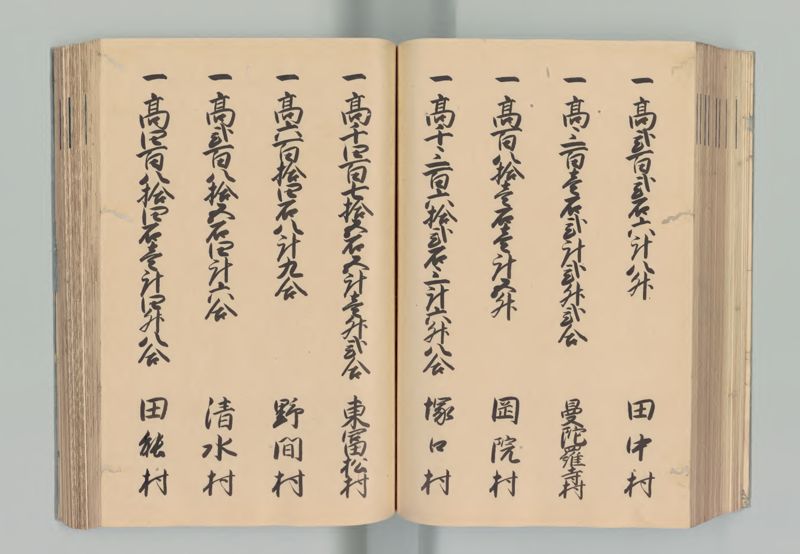 一 高弐百弐石六斗八升 田中村
一 高三百壱石弐斗弐升弐合 曼陀羅寺村
一 高百八拾壱石壱斗五升 岡院村
一 高千三百六拾弐石三斗六升八合 塚口村
一 高千四百七拾五石五斗壱升弐合 東富松村
一 高六百拾四石八斗九合 野間村
一 高弐百八拾五石四斗六合 清水村
一 高四百八拾四石壱斗四升八合 田能村